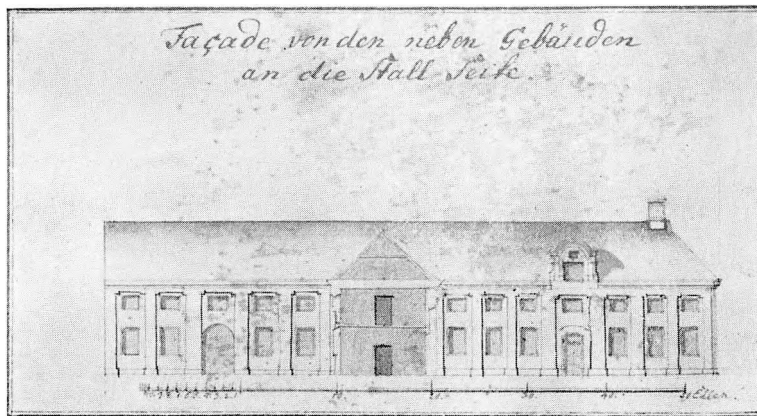 Façade von den neben Gebäuden
an die Stall Seite.
10. 20. 30. 40. 50 Ellen.